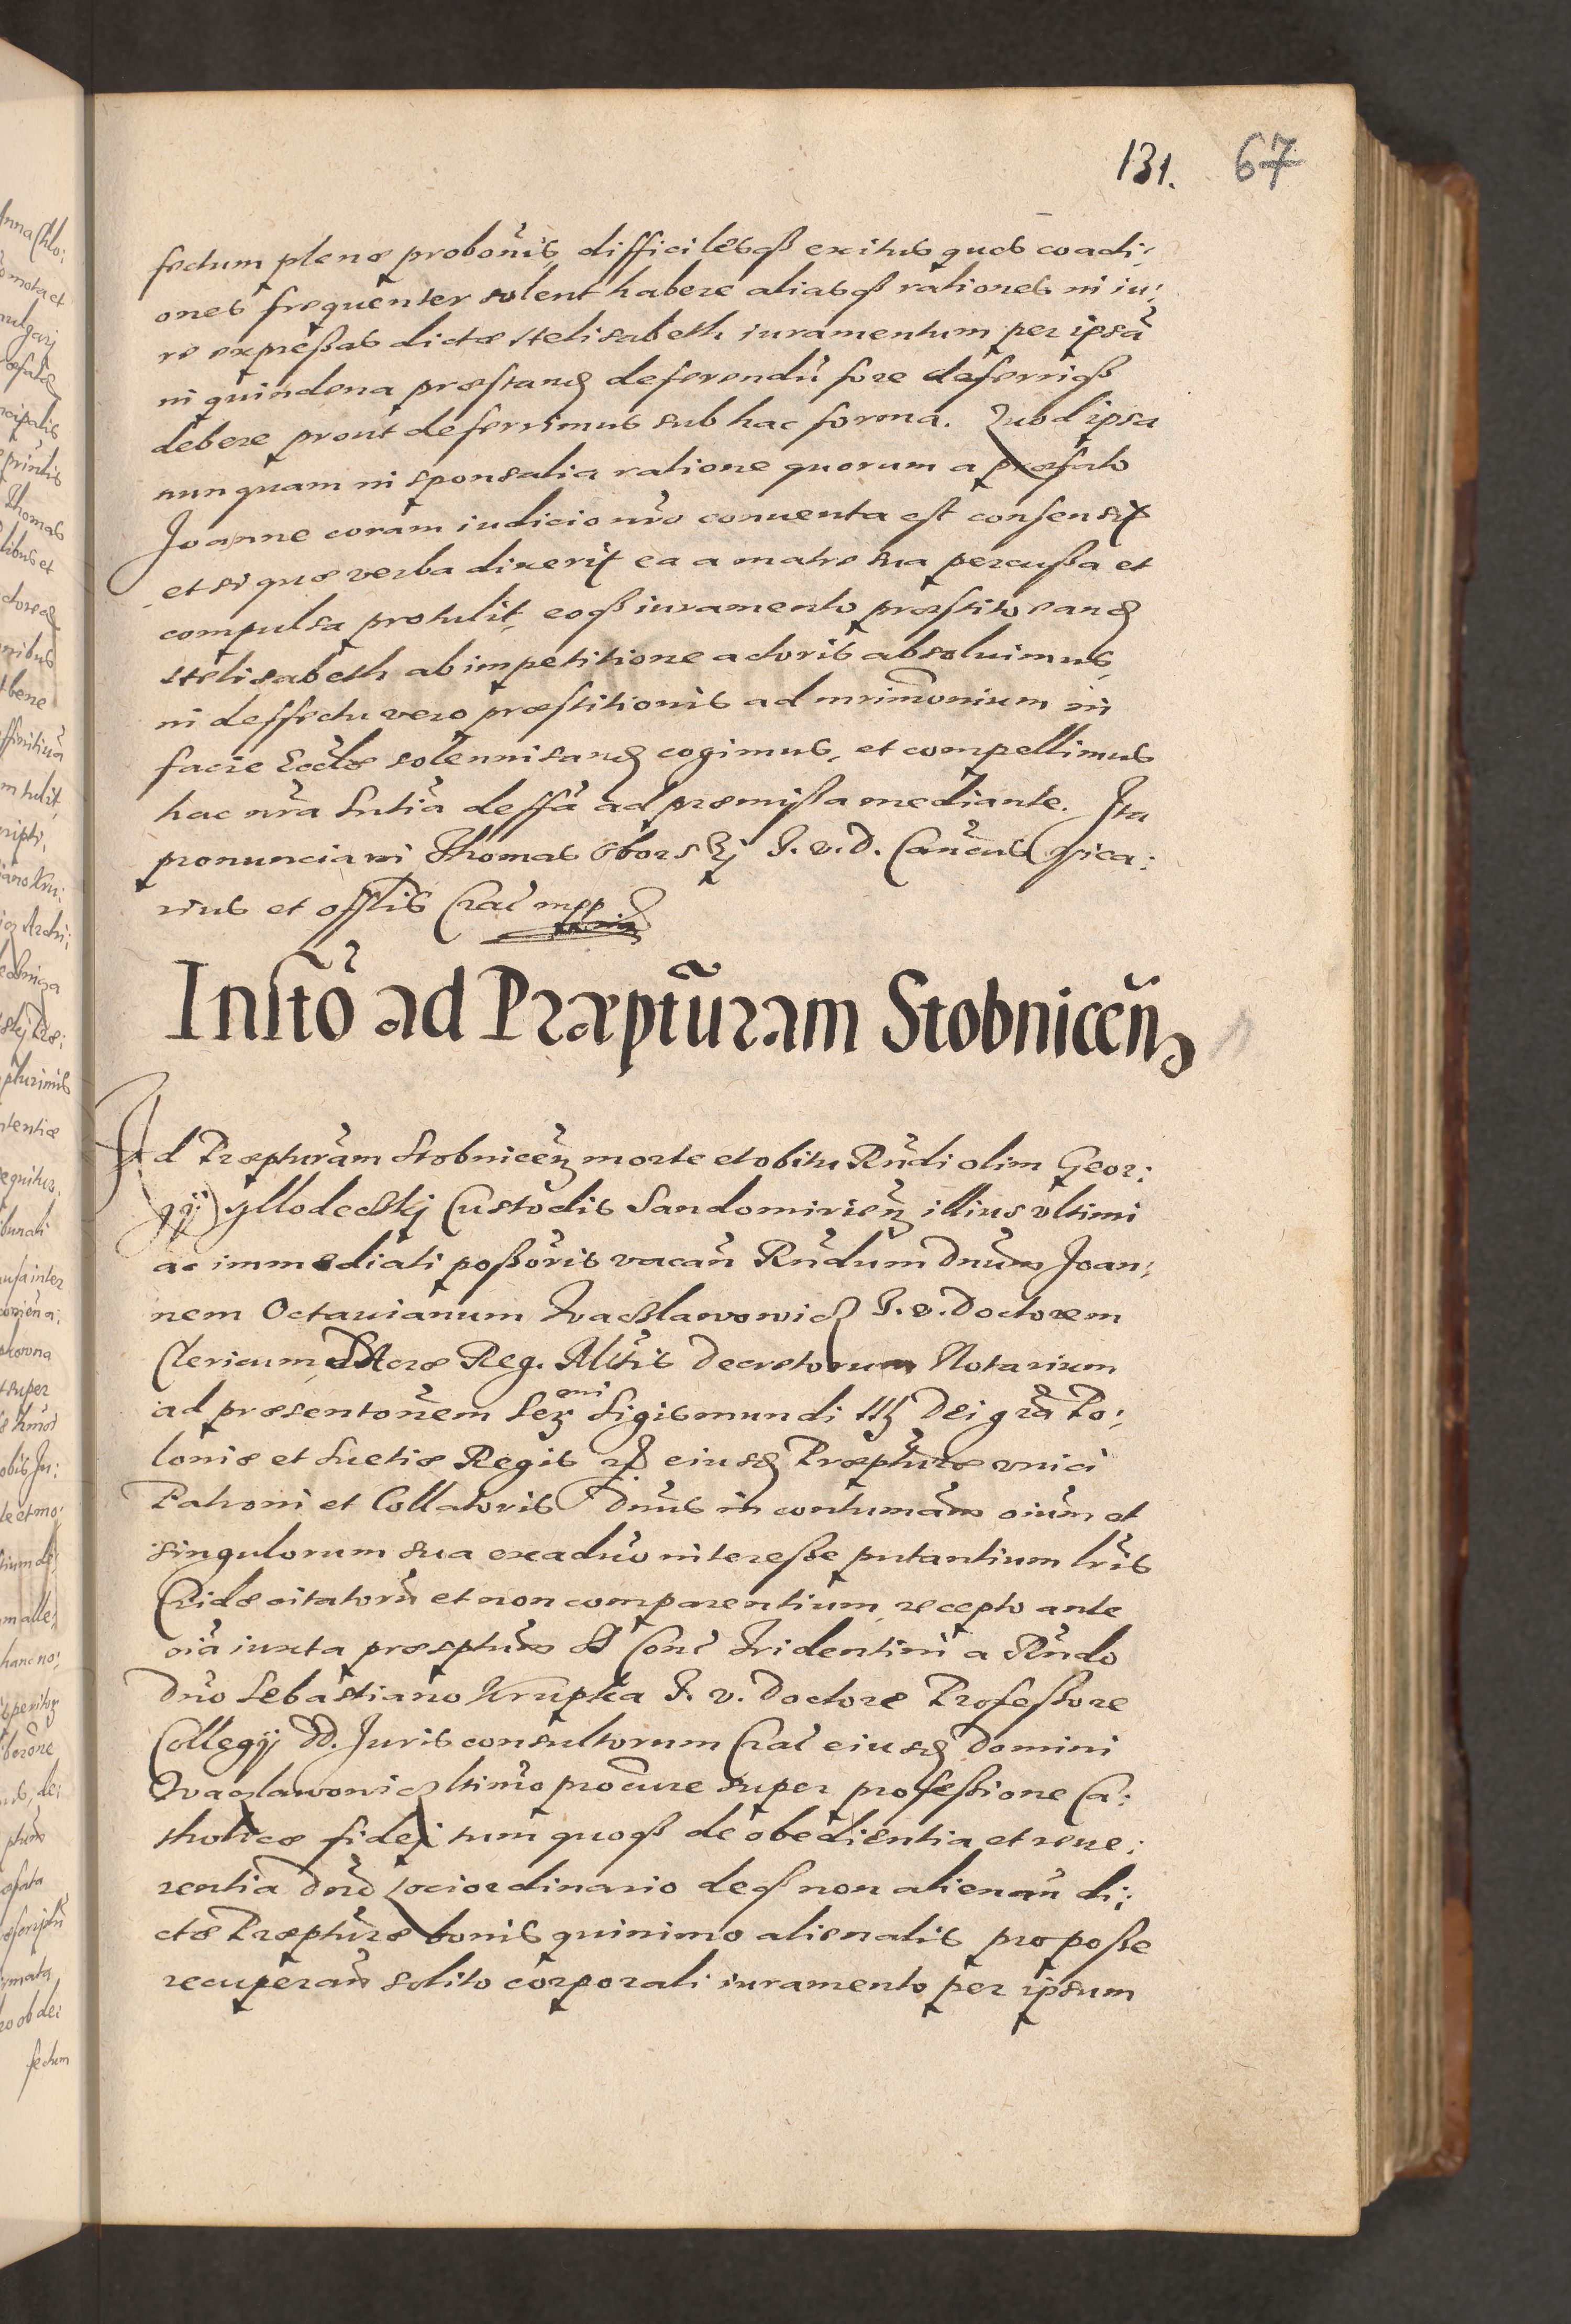 131. 67
fectum plenæ probonis, difficilesq3 exitus quos coacti:
ones frequenter solent habere aliasq3 rationes in iu:
re expressas dictæ Helisabeth iuramentum per ipsã
in quindena præstand deferendũ fore deferriq3
debere prout deferrimus sub hac forma. Quod ipsa
nunquam in sponsalia ratione quorum a præfato
Joanne coram iudicio nro conuenta est consensit
et si quæ verba dixerit ea a matre sua percussa et
compulsa protulit, eoq3 iuramento præstito eand
Helisabeth ab impetitione actoris absoluimus,
in deffectu vero præstitionis ad mrimonium in
facie Eccles solennisand cogimus, et compellimus
hac nrã sntiã deffã ad præmissa mediante. Ita
pronunciaui Thomas Oborskj J. v. D. Cancus Vica:
rius et offlis Crac mpp
Instõ ad Præptũram Stobnicen
Ad Præpturam Stobnicen morte et obitu Rndi olim Geor:
gij Yllodeckj Custodis Sandomirien illius vltimi
ac immediati possoris vacan Rndum Dnum Joan:
nem Octauianum Waczlawowicz J. v. Doctorem
Clericum Sacræ Reg. Mtis Decretorum Notarium
ad præsentonem Ser emi Sigismundi III Dei gra Po:
loniæ et Suetiæ Regis eiusd Præpturæ vnici
Patroni et Collatoris Dnus in contumam oium et
singulorum sua exaduo interesse putantium lris
Cridæ citatorũ et non comparentium, recepto ante
oia iuxta præsptum S Conc Tridentini a Rndo
Dno Sebastiano Krupka J. v. Doctore Professore
Collegij DD. Juris consultorum Crac eiusd Domini
Waczlawowicz ltimo procure super professione Ca:
tholicæ fidej tum quoq3 de obedientia et reue:
rentia Dno loci ordinario deq3 non alienan di:
ctæ Præpturæ bonis quinimo alienatis pro posse
recuperan solito corporali iuramento per ipsum